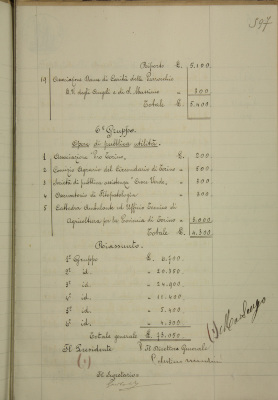 597
Riporto £. 5.100.
19 Associazione Dame di Carità delle Parrocchie
degli Angeli e di S. Massimo " 300
Totale £. 5.400.
6° Gruppo.
Opere di pubblica utilità.
1 Associazione Pro Torino, £. 200
2 Comizio Agrario del Circondario di Torino " 500
3 Società di pubblica assistenza "Croce Verde, " 300
4 Osservatorio di Fitopatologia " 300
5 Cattedra Ambulante ed Ufficio Tecnico di
Agricoltura per la Provincia di Torino " 3.000.
Totale £. 4.300.
Riassunto.
1° Gruppo £.
2° id. "
3° id. " 24.900.
4° id. " 11.400.
5° id. " 5.400.
6° id. " 4.300.
Totale generale £.
Il Presidente Il Direttore Generale
Il Segretario